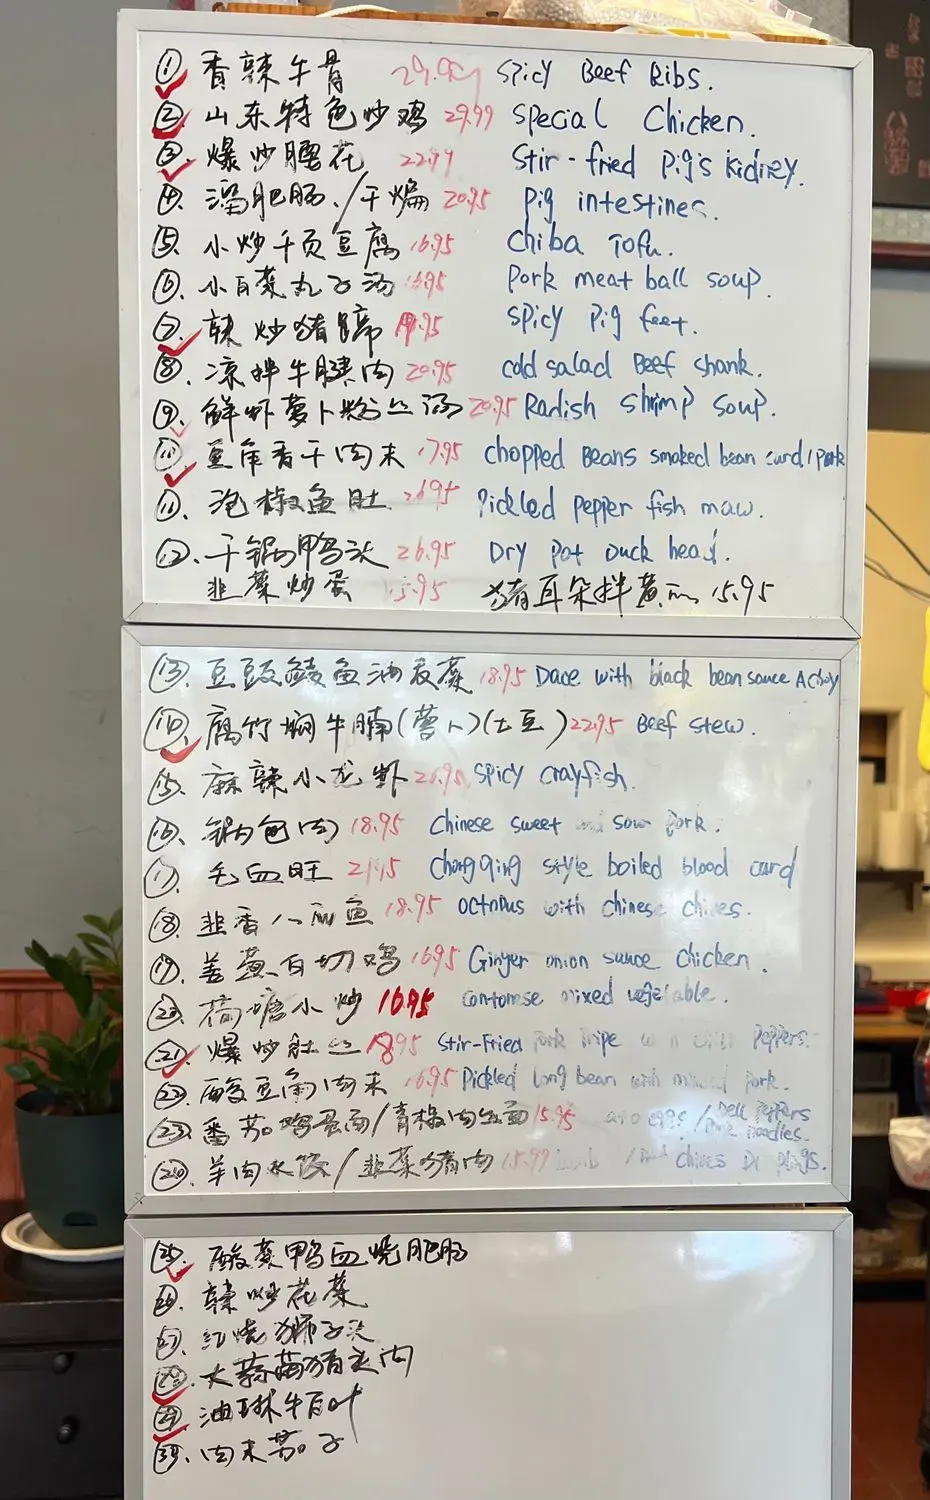 ① 香辣牛骨 29.99 Spicy Beef Ribs.
② 山东特色炒鸡 29.99 Special Chicken.
③ 爆炒腰花 22.99 Stir-fried pig's kidney.
④ 溜肥肠./干煸 20.95 Pig intestines.
⑤ 小炒千页豆腐 16.95 Chiba Tofu.
⑥ 小白菜丸子汤 16.95 Pork meat ball soup.
⑦ 辣炒猪蹄 19.95 Spicy Pig feet.
⑧ 凉拌牛腱肉 20.95 cold salad Beef shank.
⑨ 鲜虾萝卜粉丝汤 20.95 Radish shrimp soup.
⑩ 豆角香干肉末 17.95 chopped Beans smoked bean curd / pork
⑪ 泡椒鱼肚 26.95 Pickled Pepper fish maw.
⑫ 干锅鸭头 26.95 Dry Pot Duck head.
韭菜炒蛋 15.95 猪耳朵拌黄瓜 15.95
⑬ 豆豉鲮鱼油麦菜 18.95 Dace with black bean sauce A choy
⑭ 腐竹焖牛腩(萝卜)(土豆) 22.95 Beef stew.
⑮ 麻辣小龙虾 26.95 Spicy Crayfish.
⑯ 锅包肉 18.95 Chinese sweet and sour Pork.
⑰ 毛血旺 21.95 Chongqing style boiled blood curd
⑱ 韭香八爪鱼 18.95 Octopus with chinese chives.
⑲ 姜葱白切鸡 16.95 Ginger onion sauce chicken.
⑳ 荷塘小炒 16.95 Cantonese mixed vegetable.
㉑ 爆炒肚丝 18.95 Stir-Fried Pork Tripe Peppers.
㉒ 酸豆角肉末 16.95 Pickled long bean with minced Pork.
㉓ 番茄鸡蛋面/青椒肉丝面 15.95 eggs / Bell Peppers Pork noodles.
㉔ 羊肉水饺/韭菜猪肉 15.99 Lamb / chives
㉕ 酸菜鸭血烧肥肠
㉖ 辣炒花菜
㉗ 红烧狮子头
㉘ 大蒜猪头肉
㉙ 油淋牛百叶
㉚ 肉末茄子